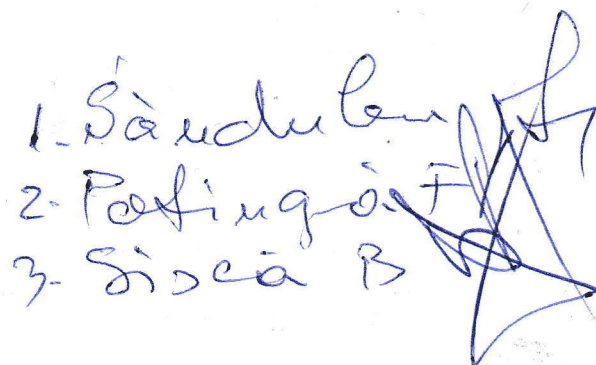 1. Săndulen
2. Patingă F
3. Sîscă B